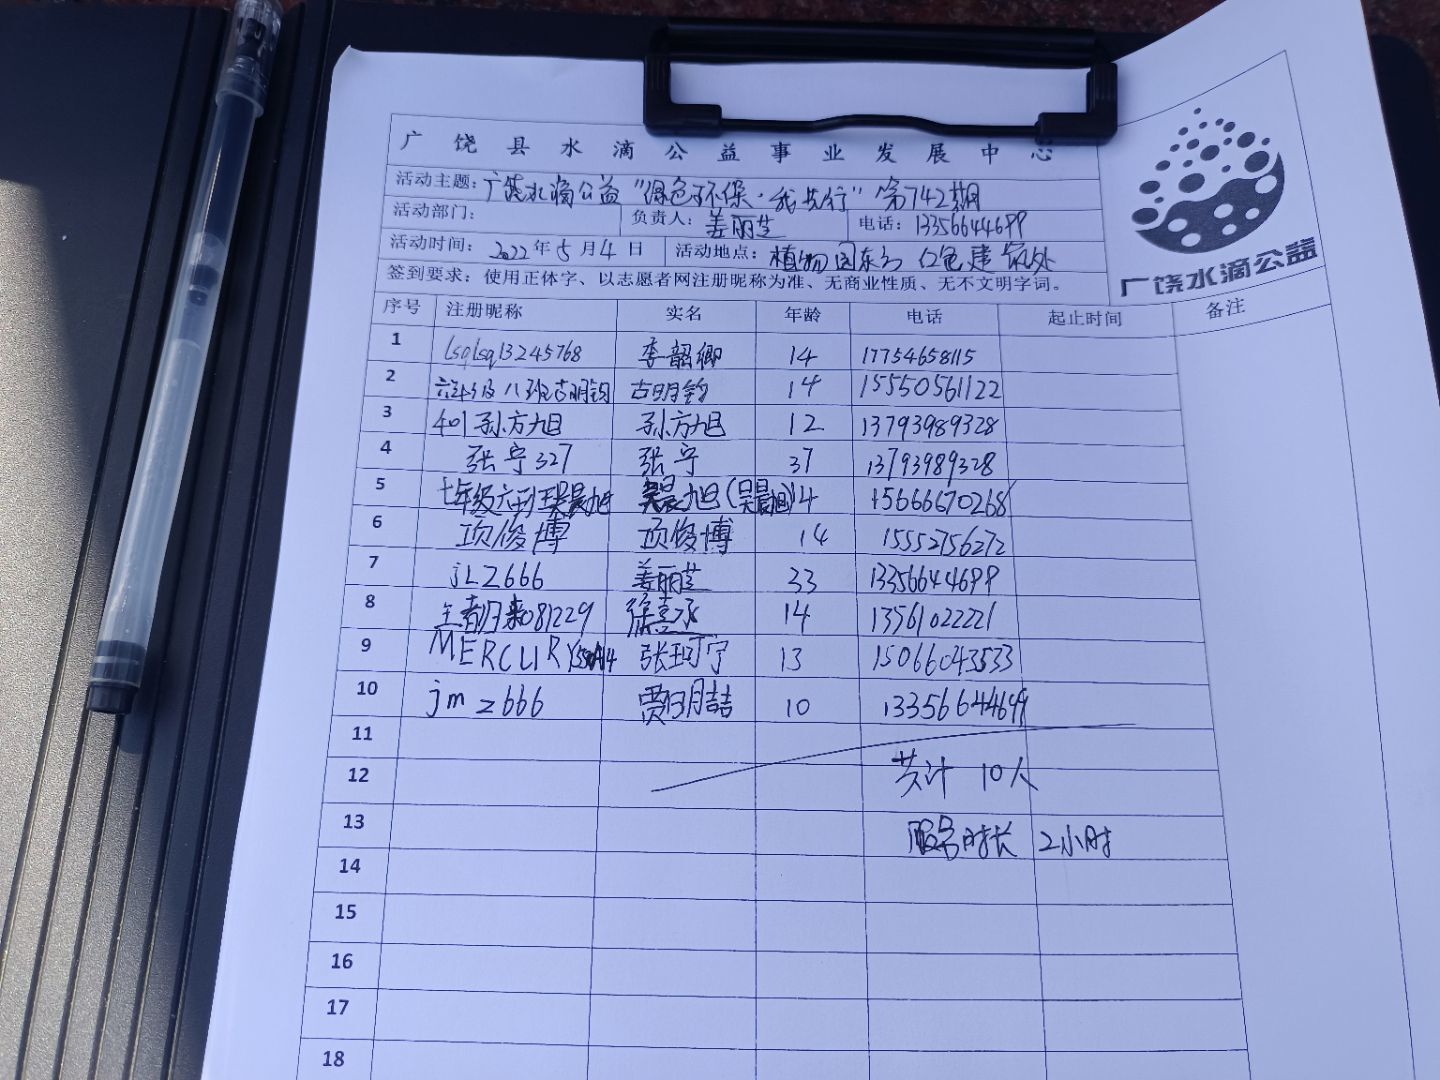 广饶县水滴公益事业发展中心
活动主题：广饶水滴公益“绿色环保·我先行”第742期
活动部门： 负责人：姜丽芝 电话：13356644699
活动时间：2022年5月4日 活动地点：植物园东 红色建筑处
签到要求：使用正体字、以志愿者网注册昵称为准、无商业性质、无不文明字词。
广饶水滴公益
序号 注册昵称 实名 年龄 电话 起止时间 备注
1 lsqlsq13245768 李韶卿 14 17754658115
2 六年级八班古明钧 古明钧 14 15550561122
3 401孙方旭 孙方旭 12 13793989328
4 张宁327 张宁 37 13793989328
5 七年级六班吴晨旭 吴晨旭(吴晨旭) 14 15666670268
6 项俊博 项俊博 14 15552756272
7 jLZ666 姜丽芝 33 13356644699
8 王者归来081229 徐熹承 14 13561022221
9 MERCURY 张珂宁 13 15066043533
10 jmz666 贾明喆 10 13356644699
11
12 共计 10人
13 服务时长 2小时
14
15
16
17
18